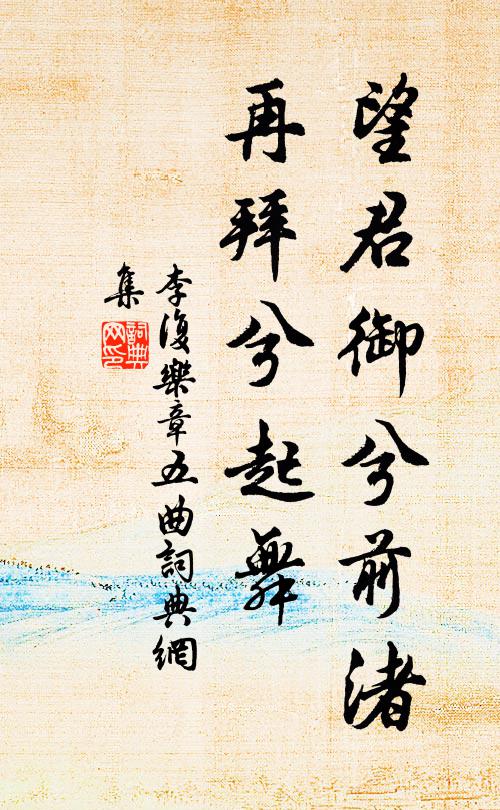 望君御兮前渚
再拜兮起舞
李復樂章五曲詞典網
集
詞典網印